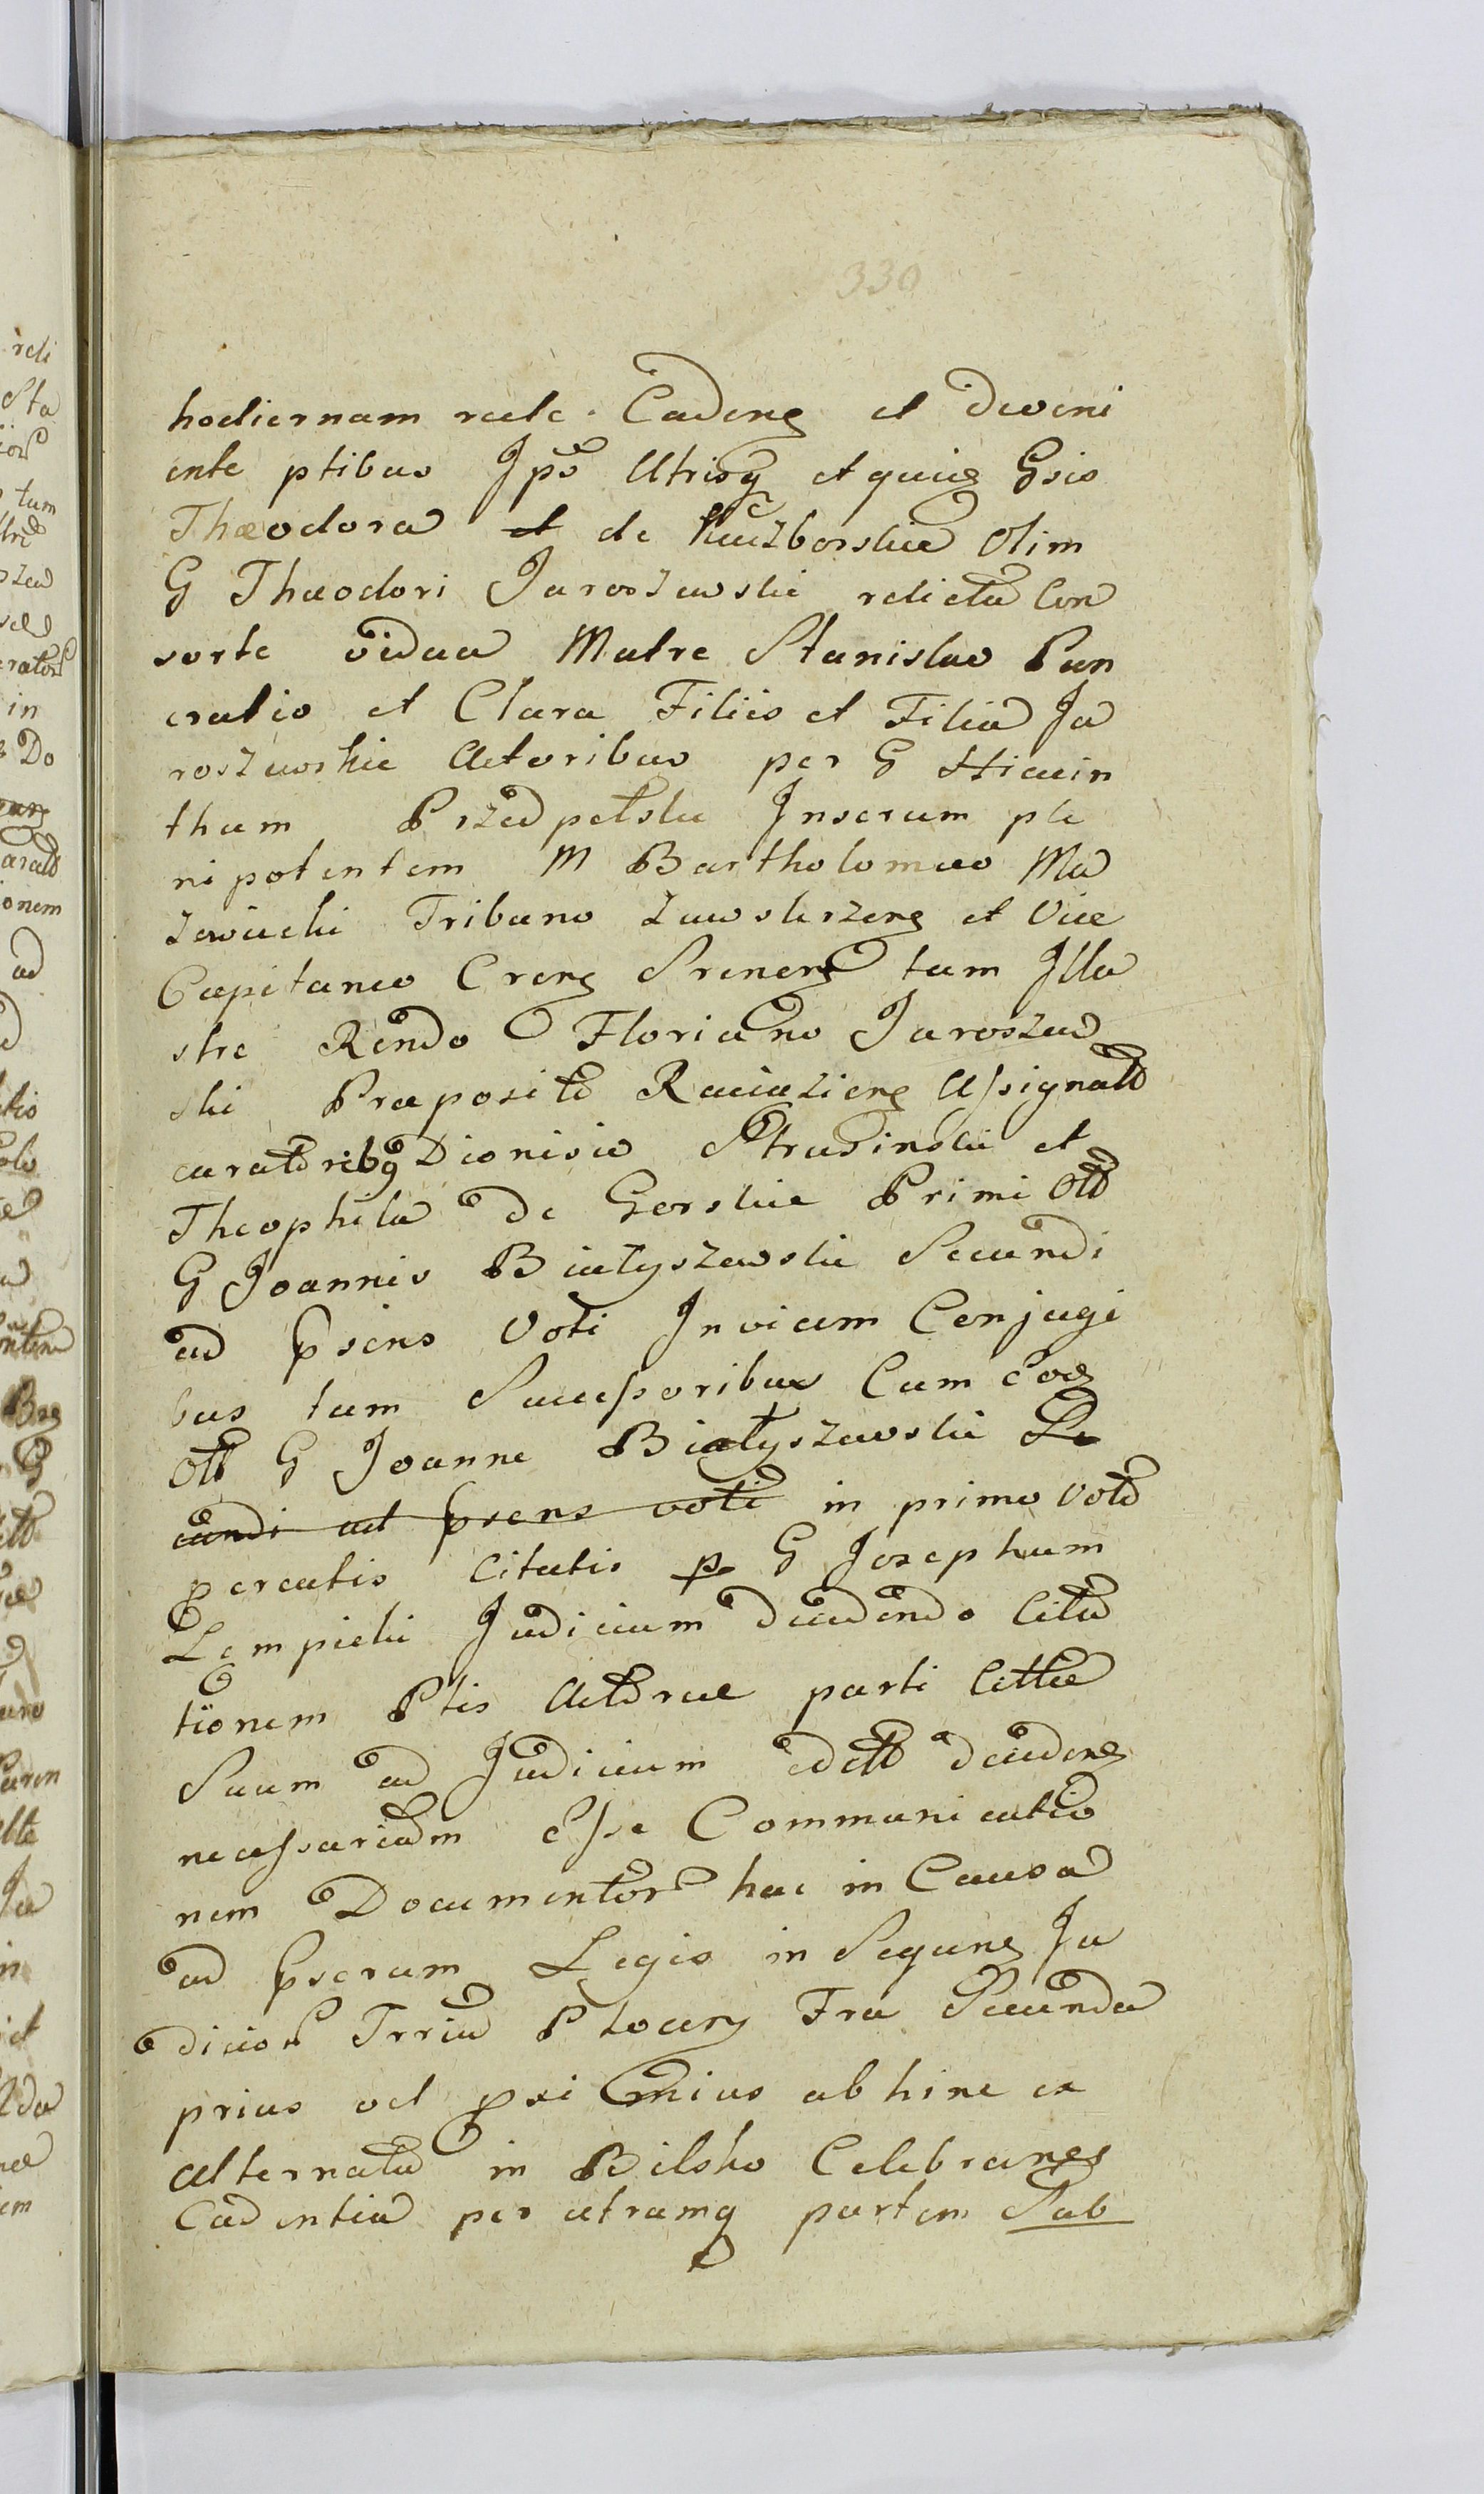 330
hodiernam recte Cadeng et deveni
ente ptibus Jpŝ Utrisq et quieg Gsis
Theodora et de Kuczborskie Olim
G Theodori Jaroszewski relicta Con
sorte vidua Matre Stanislao Pan
cratio et Clara Filiis et Filia Ja
roszewskie Actoribus per G Hiacin
thum Przedpełski Inserum ple
nipotentem M Bartholomeo Ma
zowiecki Tribuno Zawskrzeng et Vice
Capitaneo Creng Sreneng tum Illu
stre Rendo Floriano Jaroszew
ski Præposito Raciążieng Assignatt
curatoribq Dionisio Strusinski et
Theophila de Gorskie Primi Ott
G Joannis Białyszewski Secundi
ad psens Voti Invicem Conjugi
bus tum Successoribus Cum eog
Ott G Joanne Białyszewski Se
cundi ad psens voti in primo Voto
percatis Citatis p G Josephum
Lempicki Judicium decidendo Cita
tionem Ptis Actorae parti Cittae
Suum ad Judicium edett decideng
necessariam esse Communicatio
nem Documentor hac in Causa
ad pserum Legis in Sequeng Ju
dicior Trriu Ploceng Fra Secunda
prius vel pxi mius ab hinc ex
alternata in Bilsko Celebraneg
Cadentia per utramq partem Sub